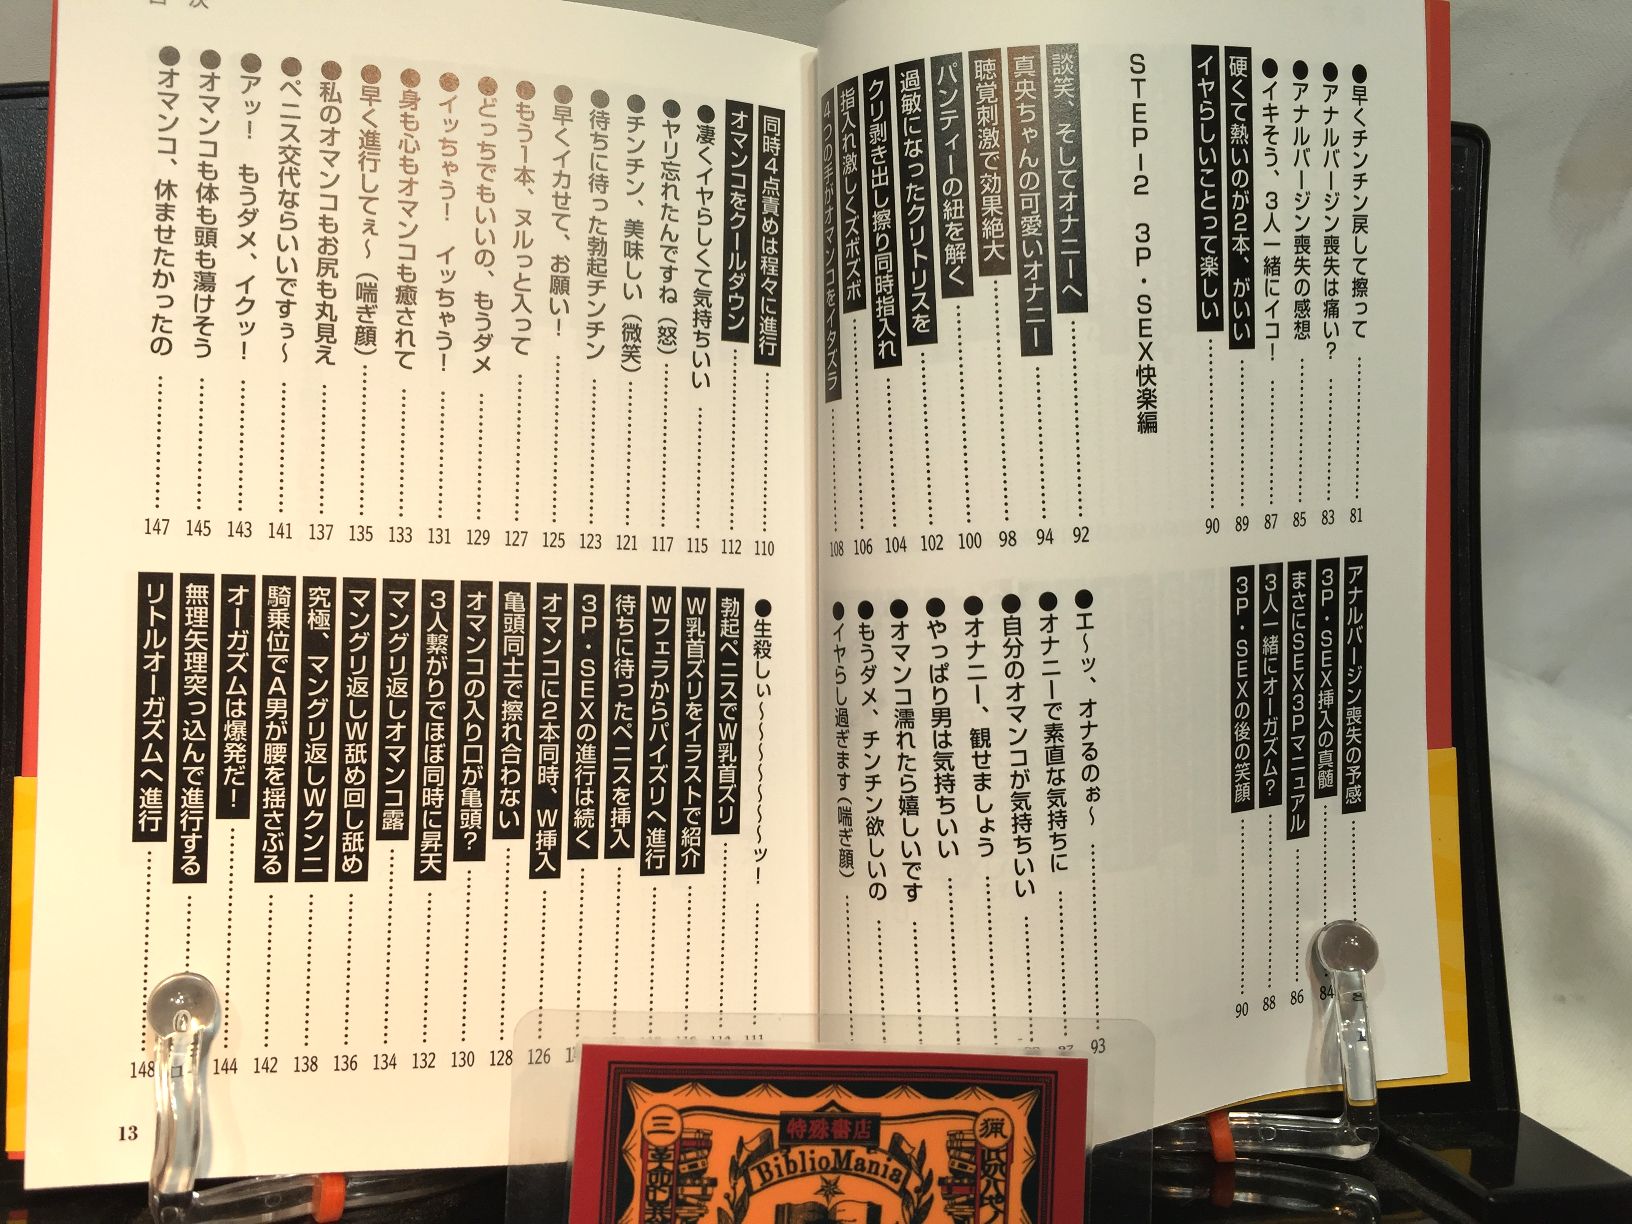 ●早くチンチン戻して擦って 81
●アナルバージン喪失は痛い? 83
●アナルバージン喪失の感想 85
●イキそう、3人一緒にイコ! 87
硬くて熱いのが2本、がいい 89
イヤらしいことって楽しい 90
STEP-2 3P・SEX快楽編
談笑、そしてオナニーへ 92
真央ちゃんの可愛いオナニー 94
聴覚刺激で効果絶大 98
パンティーの紐を解く 100
過敏になったクリトリスを 102
クリ剥き出し擦り同時指入れ 104
指入れ激しくズボズボ 106
4つの手がオマンコをイタズラ 108
アナルバージン喪失の予感
3P・SEX挿入の真髄 84
まさにSEX3Pマニュアル 86
3人一緒にオーガズム? 88
3P・SEXの後の笑顔 90
●エ〜ッ、オナるのぉ〜 93
●オナニーで素直な気持ちに
●自分のオマンコが気持ちいい
●オナニー、観せましょう
●やっぱり男は気持ちいい
●オマンコ濡れたら嬉しいです
●もうダメ、チンチン欲しいの
●イヤらし過ぎます(喘ぎ顔)
目次
同時4点責めは程々に進行 110
オマンコをクールダウン 112
●凄くイヤらしくて気持ちいい 115
●ヤリ忘れたんですね(怒) 117
●チンチン、美味しい(微笑) 121
●待ちに待った勃起チンチン 123
●早くイカせて、お願い! 125
●もう1本、ヌルっと入って 127
●どっちでもいいの、もうダメ 129
●イッちゃう! イッちゃう! 131
●身も心もオマンコも癒されて 133
●早く進行してぇ〜(喘ぎ顔) 135
●私のオマンコもお尻も丸見え 137
●ペニス交代ならいいですぅ〜 141
●アッ! もうダメ、イクッ! 143
●オマンコも体も頭も蕩けそう 145
●オマンコ、休ませたかったの 147
●生殺しぃ〜〜〜〜〜〜〜ッ! 111
勃起ペニスでW乳首ズリ
W乳首ズリをイラストで紹介
Wフェラからパイズリへ進行
待ちに待ったペニスを挿入
3P・SEXの進行は続く
オマンコに2本同時、W挿入 126
亀頭同士で擦れ合わない 128
オマンコの入り口が亀頭? 130
3人繋がりでほぼ同時に昇天 132
マングリ返しオマンコ露 134
マングリ返しW舐め回し舐め 136
究極、マングリ返しWクンニ 138
騎乗位でA男が腰を揺さぶる 142
オーガズムは爆発だ! 144
無理矢理突っ込んで進行する
リトルオーガズムへ進行 148
13
特殊書店
BiblioMania
三
猟